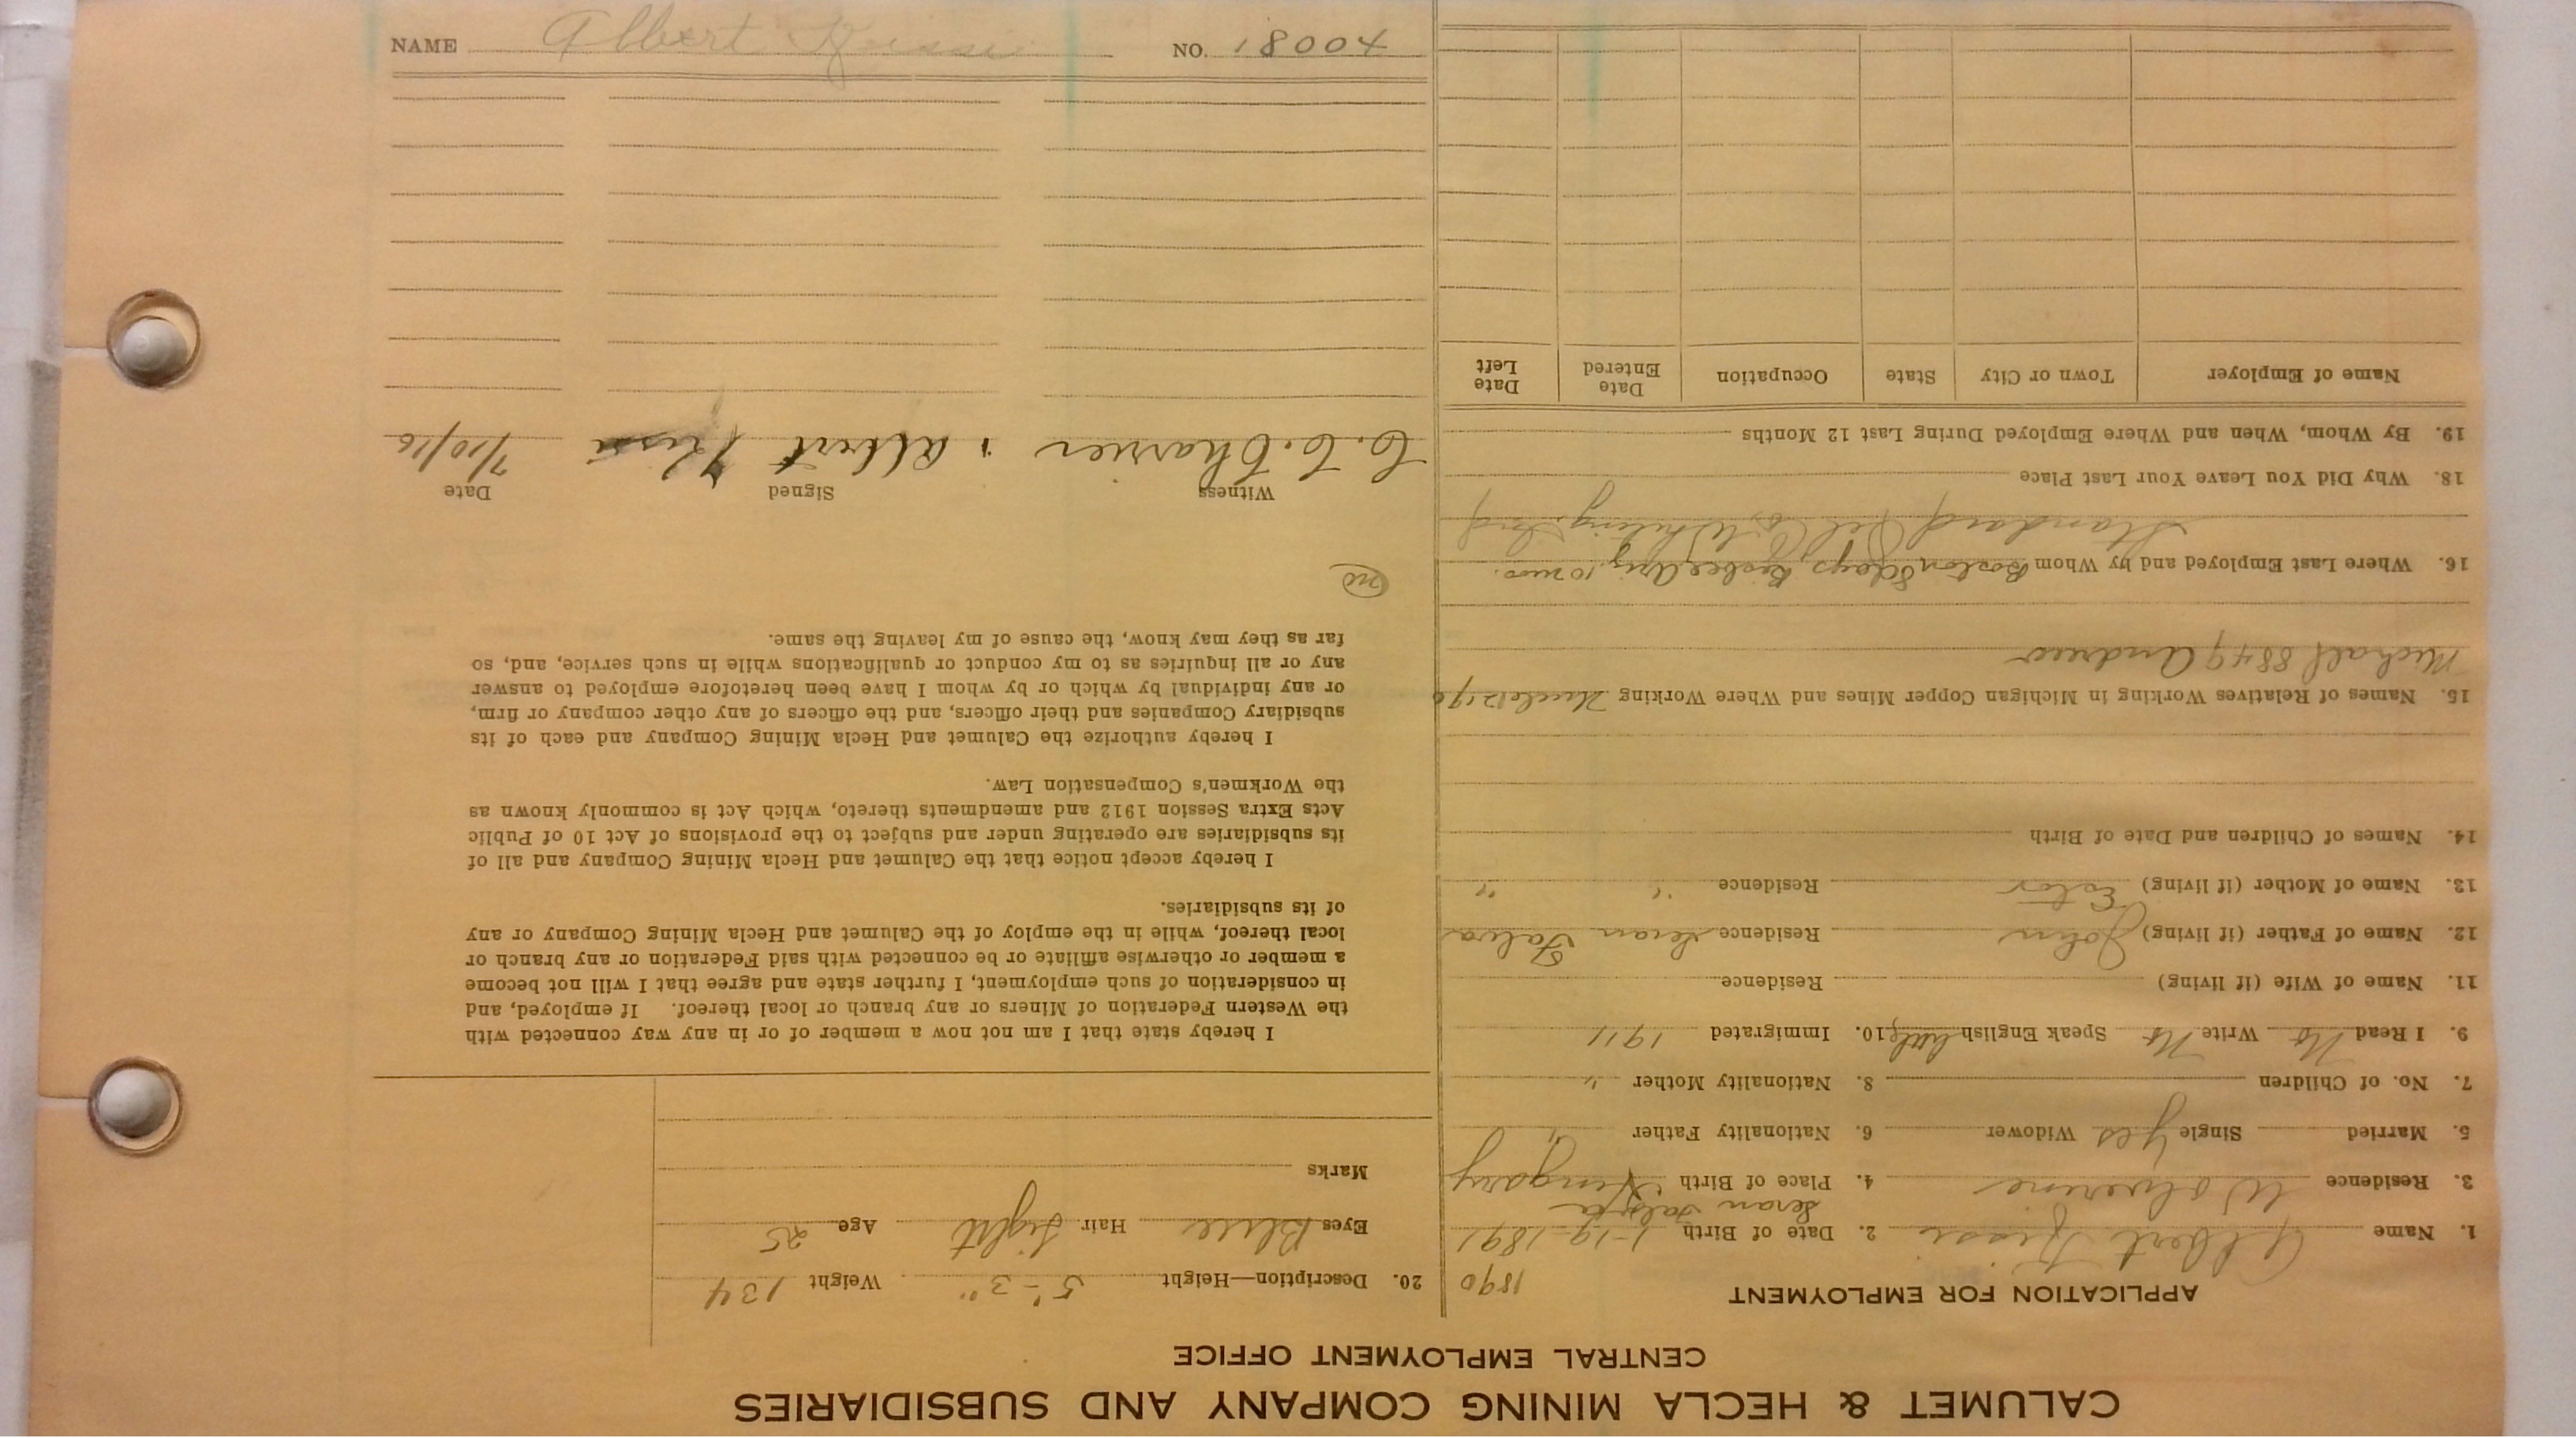 CALUMET & HECLA MINING COMPANY AND SUBSIDIARIES
CENTRAL EMPLOYMENT OFFICE
APPLICATION FOR EMPLOYMENT
1890
1. Name Albert 2. Date of Birth 1-19-1891
3. Residence Wolverine 4. Place of Birth Hungary
5. Married Single Yes Widower 6. Nationality Father "
7. No. of Children 8. Nationality Mother "
9. I Read No Write No Speak English little 10. Immigrated 1911
11. Name of Wife (if living) Residence
12. Name of Father (if living) John Residence
13. Name of Mother (if living) Residence " "
14. Names of Children and Date of Birth
15. Names of Relatives Working in Michigan Copper Mines and Where Working
8849 Andrew
16. Where Last Employed and by Whom Boston 8 days Bisbee Ariz. 10 mos.
Standard Oil Co. Whiting, Ind
18. Why Did You Leave Your Last Place
19. By Whom, When and Where Employed During Last 12 Months
Name of Employer Town or City State Occupation Date Entered Date Left
20. Description—Height 5'-3" Weight 134
Eyes Blue Hair Light Age 25
Marks
I hereby state that I am not now a member of or in any way connected with
the Western Federation of Miners or any branch or local thereof. If employed, and
in consideration of such employment, I further state and agree that I will not become
a member or otherwise affiliate or be connected with said Federation or any branch or
local thereof, while in the employ of the Calumet and Hecla Mining Company or any
of its subsidiaries.
I hereby accept notice that the Calumet and Hecla Mining Company and all of
its subsidiaries are operating under and subject to the provisions of Act 10 of Public
Acts Extra Session 1912 and amendments thereto, which Act is commonly known as
the Workmen's Compensation Law.
I hereby authorize the Calumet and Hecla Mining Company and each of its
subsidiary Companies and their officers, and the officers of any other company or firm,
or any individual by which or by whom I have been heretofore employed to answer
any or all inquiries as to my conduct or qualifications while in such service, and, so
far as they may know, the cause of my leaving the same.
Witness Signed Date
Albert 7/10/16
NAME Albert NO. 18004